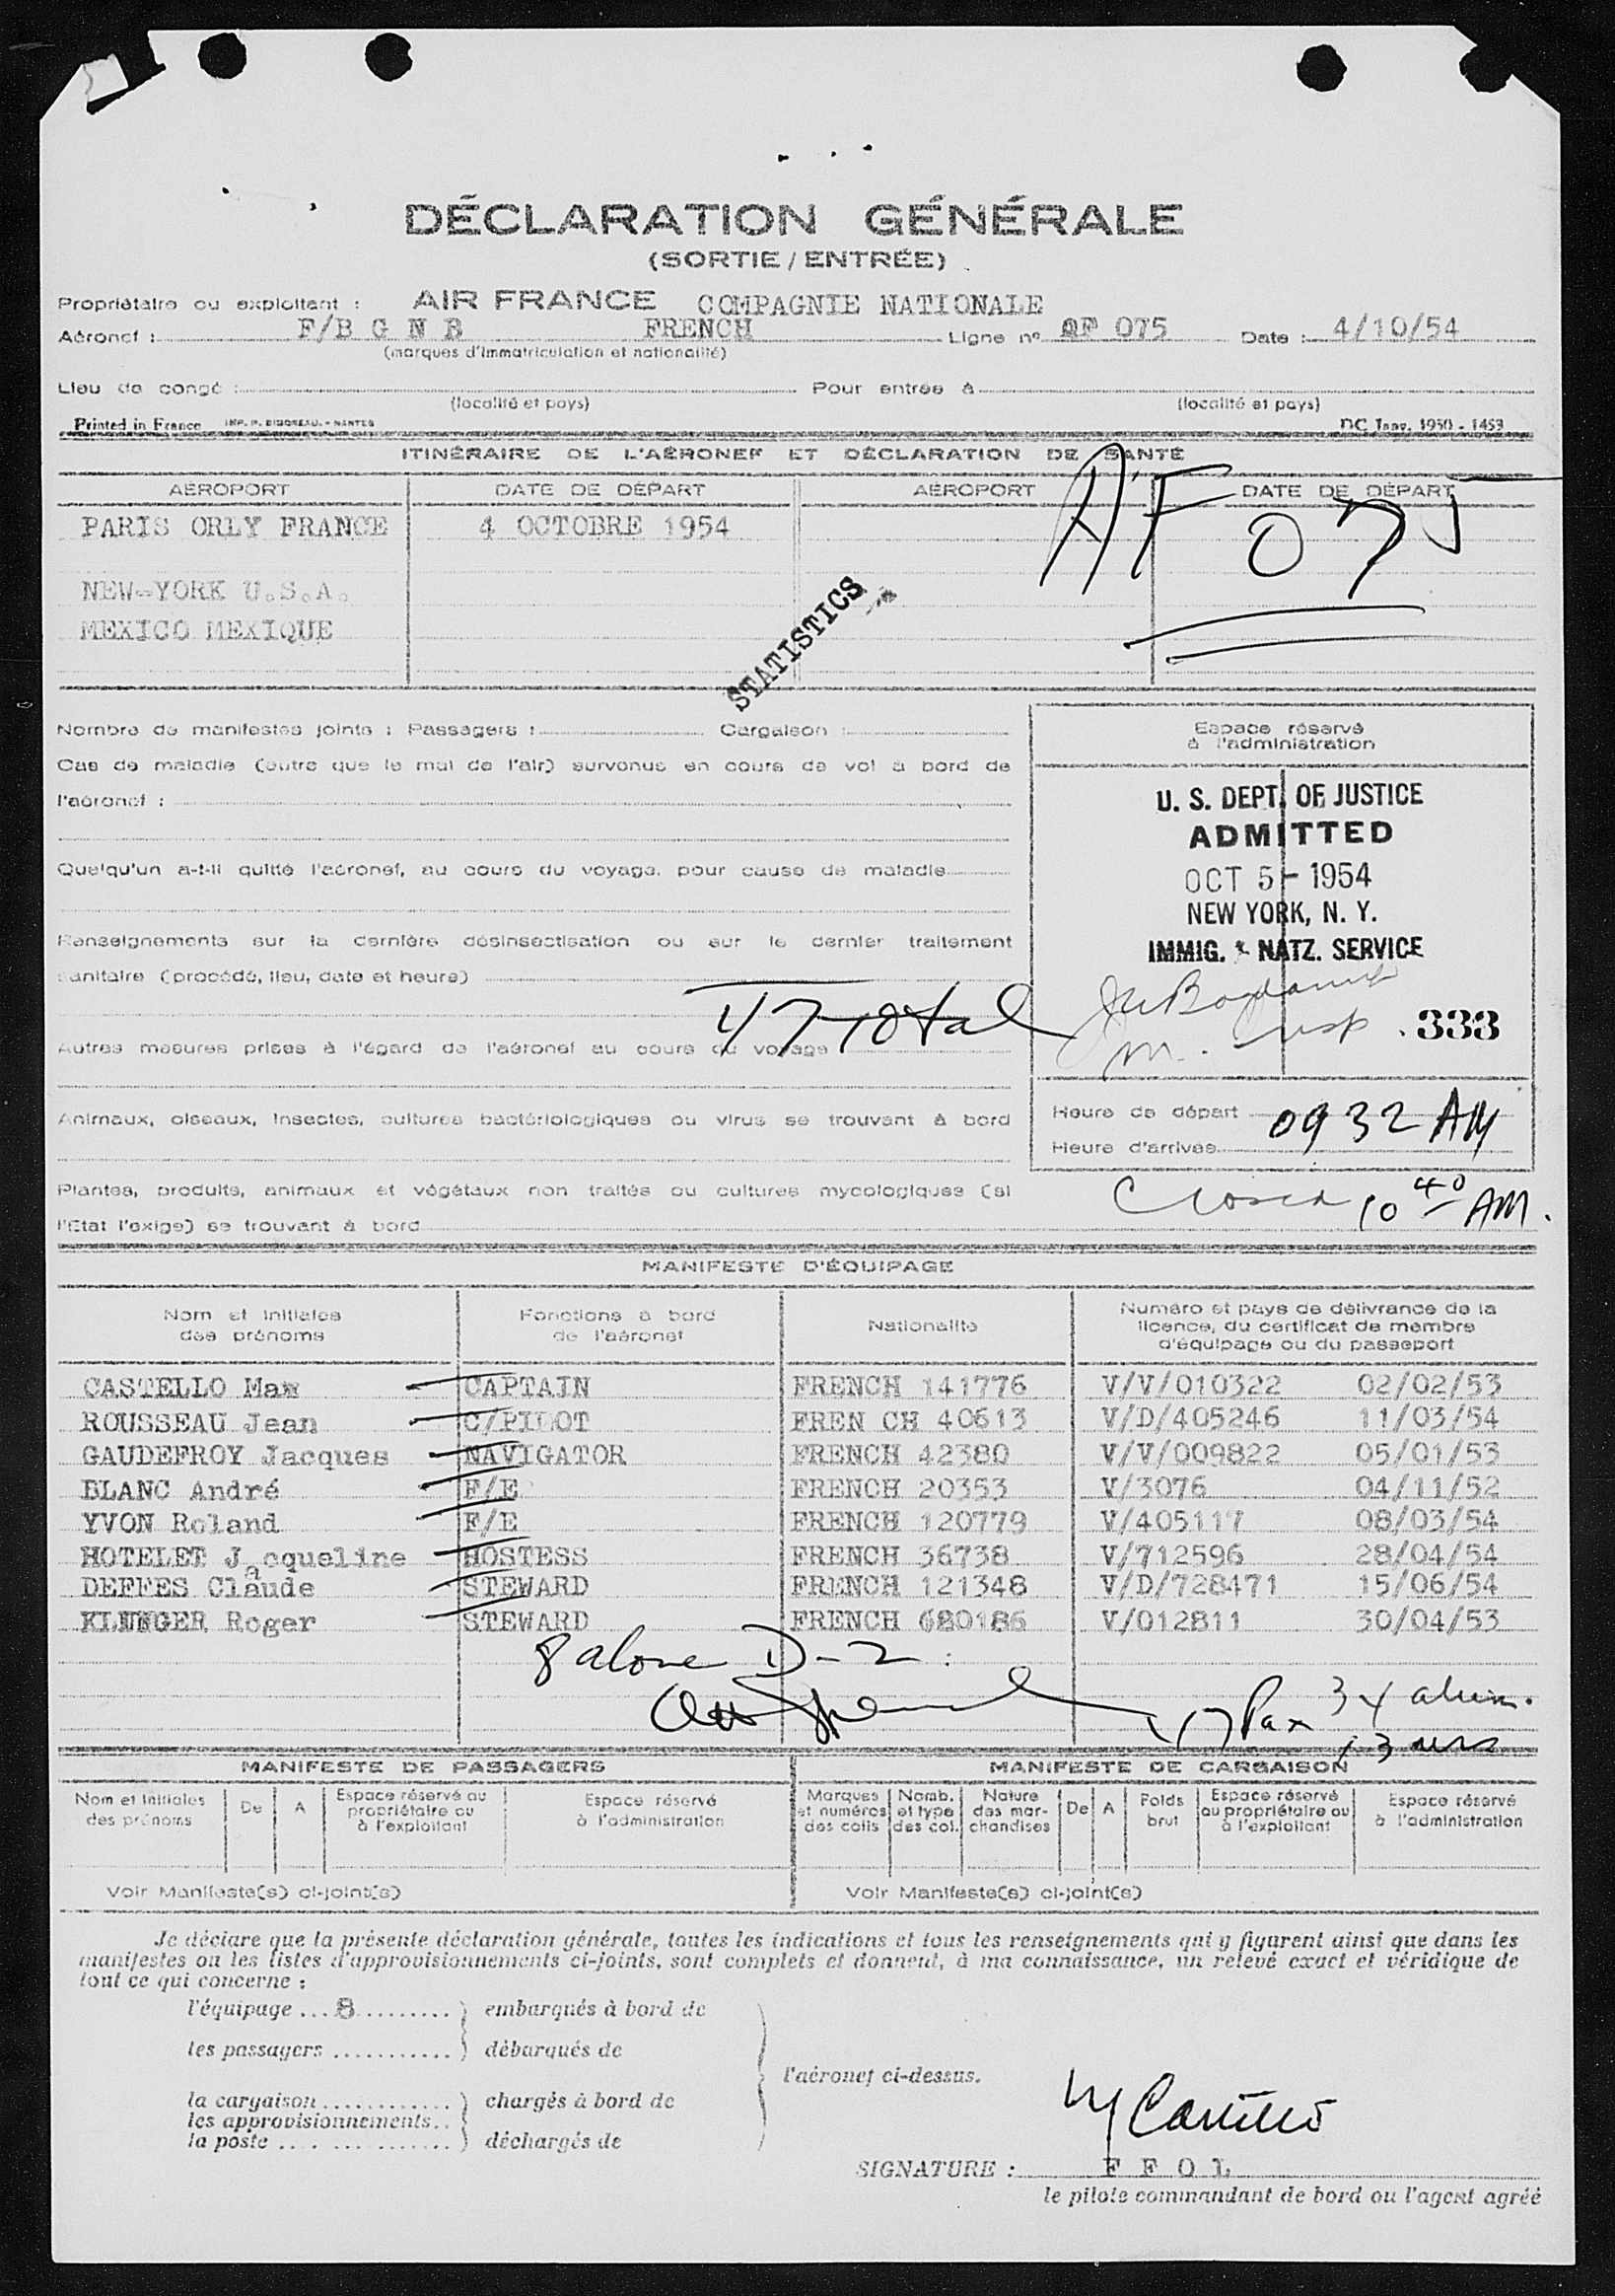 DÉCLARATION GÉNÉRALE
(SORTIE / ENTRÉE)
Propriétaire ou exploitant : AIR FRANCE COMPAGNIE NATIONALE
Aéronef : F/B G N B FRENCH Ligne nº AF 075 Date : 4/10/54
(marques d'immatriculation et nationalité)
Lieu de congé : Pour entrée à
(localité et pays) (localité et pays)
Printed in France IMP. P. BIGOREAU. - NANTES DC Janv. 1950 - 1453
ITINÉRAIRE DE L'AÉRONEF ET DÉCLARATION DE SANTÉ
AÉROPORT DATE DE DÉPART AÉROPORT DATE DE DÉPART
PARIS ORLY FRANCE 4 OCTOBRE 1954
AF 075
NEW-YORK U.S.A.
MEXICO MEXIQUE
STATISTICS
Nombre de manifestes joints : Passagers : Cargaison :
Cas de maladie (autre que le mal de l'air) survenus en cours de vol à bord de
l'aéronef :
Quelqu'un a-t-il quitté l'aéronef, au cours du voyage, pour cause de maladie
Renseignements sur la dernière désinsectisation ou sur le dernier traitement
sanitaire (procédé, lieu, date et heure)
47 Total
Autres mesures prises à l'égard de l'aéronef au cours du voyage
Animaux, oiseaux, insectes, cultures bactériologiques ou virus se trouvant à bord
Plantes, produits, animaux et végétaux non traités ou cultures mycologiques (si
l'Etat l'exige) se trouvant à bord
Espace réservé
à l'administration
U. S. DEPT. OF JUSTICE
ADMITTED
OCT 5 - 1954
NEW YORK, N. Y.
IMMIG. & NATZ. SERVICE
Insp. 333
Heure de départ 0932 AM
Heure d'arrivée
Closed 10 40 AM.
MANIFESTE D'ÉQUIPAGE
Nom et initiales des prénoms Fonctions à bord de l'aéronef Nationalité Numéro et pays de délivrance de la licence, du certificat de membre d'équipage ou du passeport
CASTELLO Max CAPTAIN FRENCH 141776 V/V/010322 02/02/53
ROUSSEAU Jean C/PILOT FREN CH 40613 V/D/405246 11/03/54
GAUDEFROY Jacques NAVIGATOR FRENCH 42380 V/V/009822 05/01/53
BLANC André F/E FRENCH 20353 V/3076 04/11/52
YVON Roland F/E FRENCH 120779 V/405117 08/03/54
HOTELET Jacqueline HOSTESS FRENCH 36738 V/712596 28/04/54
DEFFES Claude STEWARD FRENCH 121348 V/D/728471 15/06/54
KLUNGER Roger STEWARD FRENCH 680186 V/012811 30/04/53
8 above D-2
47 Pax 34 aliens.
13 uscs
MANIFESTE DE PASSAGERS MANIFESTE DE CARGAISON
Nom et initiales des prénoms De A Espace réservé au propriétaire ou à l'exploitant Espace réservé à l'administration Marques et numéros des colis Nomb. et type des col. Nature des mar- chandises De A Poids brut Espace réservé au propriétaire ou à l'exploitant Espace réservé à l'administration
Voir Manifeste(s) ci-joint(s) Voir Manifeste(s) ci-joint(s)
Je déclare que la présente déclaration générale, toutes les indications et tous les renseignements qui y figurent ainsi que dans les
manifestes ou les listes d'approvisionnements ci-joints, sont complets et donnent, à ma connaissance, un relevé exact et véridique de
tout ce qui concerne :
l'équipage ... 8 ......... embarqués à bord de
les passagers ........... débarqués de
l'aéronef ci-dessus.
la cargaison ............ chargés à bord de
les approvisionnements..
la poste .... .............. déchargés de
M Castello
SIGNATURE : F F O L
le pilote commandant de bord ou l'agent agréé